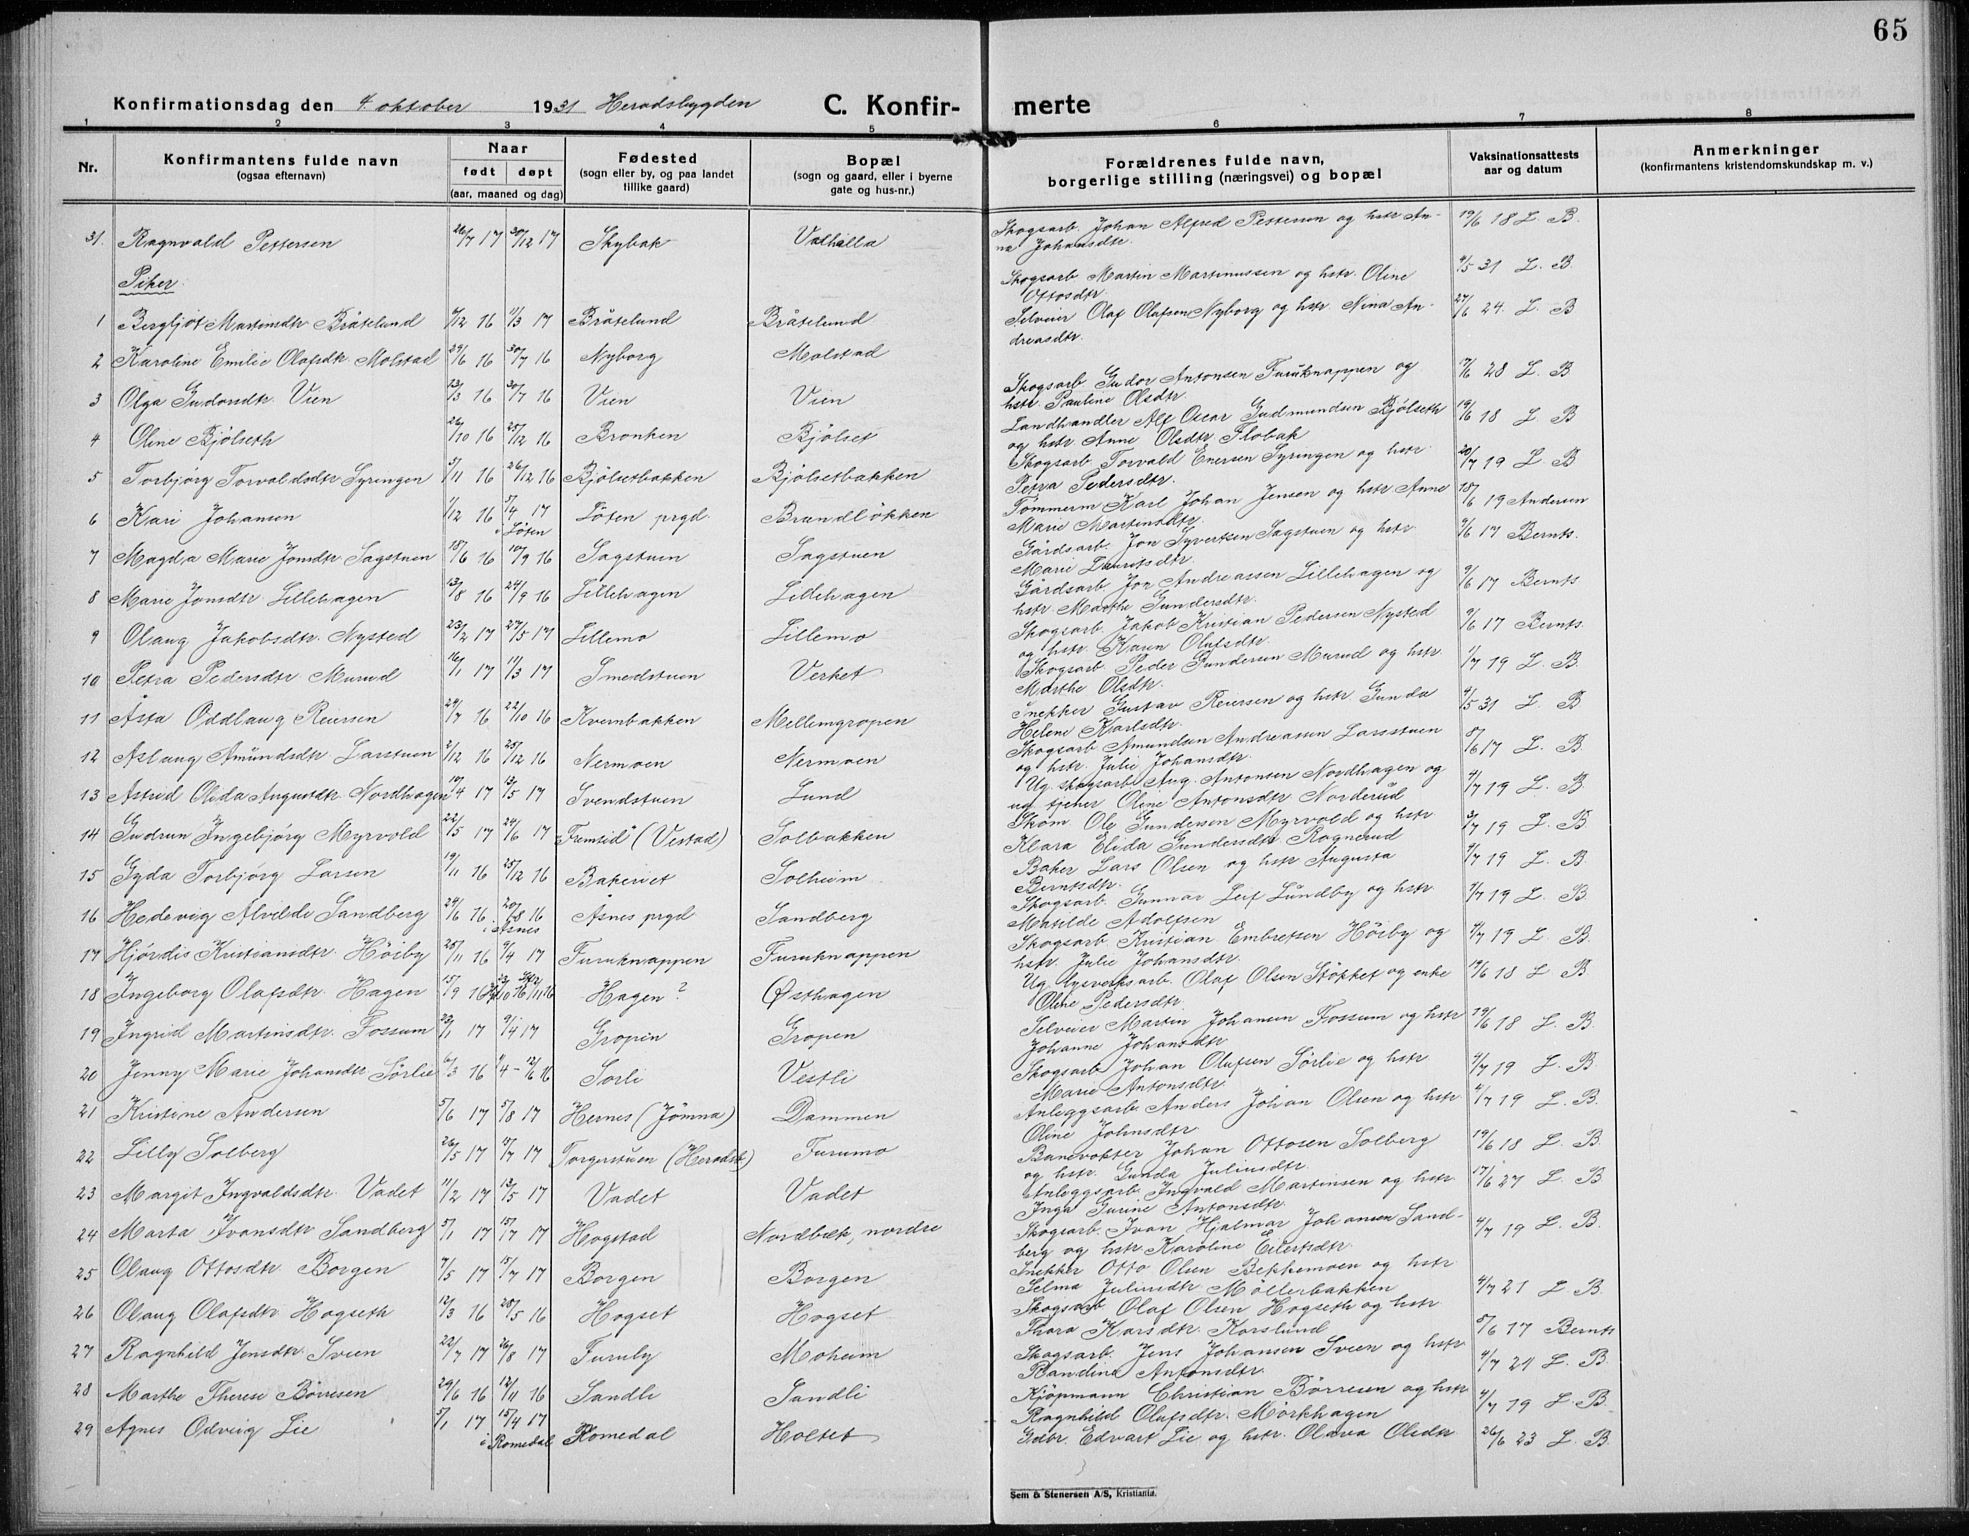 65
Konfirmationsdag den 4. oktober 1931 Heradsbygden C. Konfir- merte
1 2 3 4 5 6 7 8
Nr. Konfirmantens fulde navn (ogsaa efternavn) Naar født døpt (aar, maaned og dag) Fødested (sogn eller by, og paa landet tillike gaard) Bopæl (sogn og gaard, eller i byerne gate og hus-nr.) Forældrenes fulde navn, borgerlige stilling (næringsvei) og bopæl Vaksinationsattests aar og datum Anmerkninger (konfirmantens kristendomskundskap m. v.)
31. Ragnvald Pettersen 26/7 17 30/12 17 Skybak Valhalla Skogsarb. Johan Alfred Pettersen og hstr An-
na Johansdtr. 19/6 18 L. B.
Piker:
1 Bergljot Martinsdtr Bråtelund 4/12 16 11/3 17 Bråtelund Bråtelund Skogsarb Martin Martinussen og hstr. Oline
Ottosdtr 4/5 31 L. B.
2 Karoline Emilie Olafsdtr. Molstad 29/6 16 30/7 16 Nyborg Molstad Selveier Olaf Olafsen Nyborg og hstr Nina An-
dreasdtr. 27/6 24. L. B
3 Olga Gudorsdtr. Vien 23/3 16 30/7 16 Vien Vien Skogsarb Gudor Antonsen Furuknappen og
hstr. Pauline Olsdtr. 17/6 28 L. B
4 Oline Bjølseth 26/10 16 25/12 16 Bronken Bjølset Landhandler Alf Oscar Gudmundsen Bjølseth
og hstr Anne Olsdtr Flobak 19/6 18 L. B
5 Torbjørg Torvaldsdtr Syringen 3/11 16 26/12 16 Bjølsetbakken Bjølsetbakken Skogsarb Torvald Enersen Syringen og hstr
Petra Pedersdtr. 20/7 19 L. B
6 Kari Johansen 1/12 16 5/4 17 i Løten Løten prgd. Brundløkken Tømmerm Karl Johan Jensen og hstr Anne
Marie Martinsdtr. 18/6 19 Andersen
7 Magda Marie Jonsdtr Sagstuen 18/6 16 10/9 16 Sagstuen Sagstuen Gårdsarb. Jon Syvertsen Sagstuen og hstr
Marie Lauritsdtr 9/6 17 Bernts.
8 Marie Jonsdtr. Lillehagen 13/8 16 24/9 16 Lillehagen Lillehagen Gårdsarb Jon Andreassen Lillehagen og
hstr. Marthe Gundersdtr. 9/6 17 Bernts
9 Olaug Jakobsdtr. Nysted 23/2 17 27/5 17 Lillemo Lillemo Skogsarb. Jakob Kristian Pedersen Nysted
og hstr. Karen Olufsdtr. 9/6 17 Bernts.
10 Petra Pedersdtr Murud 16/1 17 11/3 17 Smedstuen Verket Skogsarb Peder Gundersen Murud og hstr.
Marthe Olsdtr. 1/7 19 L. B
11 Åsta Oddlaug Reiersen 29/7 16 22/10 16 Kvernbakken Mellemgropen Snekker Gustav Reiersen og hstr Gunda
Helene Karlsdtr. 4/5 31 L. B
12 Aslaug Amundsdtr Larstuen 2/12 16 25/12 16 Nermoen Nermoen Skogsarb Amundsen Andreassen Larsstuen
og hstr. Julie Johansdtr. 5/6 17 L. B.
13 Astrid Olida Augustdtr. Nordhagen 10/4 17 13/5 17 Svendstuen Lund Ug. skogsarb. Aug. Antonsen Nordhagen og
ug. tjener Oline Antonsdtr. Norderud 4/7 19 L. B
14 Gudrun Ingebjørg Myrvold 22/5 17 24/6 17 "Fremtid" (Vestad) Solbakken Skom Ole Gundersen Myrvold og hstr
Klara Elida Gundersdtr Rognerud 3/7 19 L. B
15 Gyda Torbjørg Larsen 19/11 16 25/12 16 Bakeriet Solheim Baker Lars Olsen og hstr Augusta
Berntsdtr. 3/7 19 L. B
16 Hedevig Alvilde Sandberg 24/6 16 20/8 16 i Åsnes Åsnes prgd Sandberg Skogsarb. Gunnar Leif Lundby og hstr.
Matilde Adolfsen 7/7 19 L. B.
17 Hjørdis Kristiansdtr. Høiby 25/11 16 9/4 17 Furuknappen Furuknappen Skogsarb. Kristian Embretsen Höiby og
hstr. Julie Johansdtr. 4/7 19 L. B.
18 Ingeborg Olafsdtr. Hagen 15/9 16 Hagen? Østhagen Ug. lysverksarb. Olaf Olsen Støkket og enke
Oline Pedersdtr. 19/6 18 L. B
19 Ingrid Martinsdtr. Fossum 23/1 17 9/4 17 Gropen Gropen Selveier Martin Johansen Fossum og hstr
Johanne Johansdtr 19/6 18 L. B.
20 Jenny Marie Johansdtr Sørlie 6/3 16 4/4 - 12/6 16 Sorli Vestli Skogsarb Johan Olufsen Sørlie og hstr
Marie Antonsdtr. 4/7 19 L. B.
21 Kristine Andersen 5/6 17 5/8 17 Hernes (Jømna) Dammen Anleggsarb. Anders Johan Olsen og hstr
Oline Johnsdtr. 4/7 19 L. B.
22 Lilly Solberg 26/5 17 15/7 17 Torgerstuen (Heradst) Furumo Banevokter Johan Ottosen Solberg
og hstr. Gunda Juliusdtr. 19/6 18 L. B
23 Margit Ingvaldsdtr. Vadet 11/2 17 13/5 17 Vadet Vadet Anleggsarb. Ingvald Martinsen og hstr.
Inga Gurine Antonsdtr. 17/6 27 L. B
24 Marta Ivansdtr Sandberg 5/1 17 15/7 17 Hogstad Nordbæk, nordre Skogsarb. Ivan Hjalmar Johansen Sand-
berg og hstr Karoline Eilertsdtr. 4/7 19 L. B.
25 Olaug Ottosdtr Borgen 7/5 17 15/7 17 Borgen Borgen Snekker Otto Olsen Bekkemoen og hstr
Selma Juliusdtr Möllerbakken 4/7 21 L B.
26 Olaug Olafsdtr Hogseth 12/3 16 28/5 16 Hogset Hogset Skogsarb Olaf Olsen Hogseth og hstr
Thora Karsdtr. Korslund 5/6 17 Bernts
27 Ragnhild Jensdtr. Sveen 22/7 17 26/8 17 Furuly Moheim Skogsarb. Jens Johansen Sveen og hstr
Randina Antonsdtr. 4/7 21 L. B.
28 Marthe Therese Børresen 29/6 16 12/11 16 Sandli Sandli Kjöpmann Christian Börresen og hstr
Ragnhild Olufsdtr. Mörkhagen 4/7 19 L. B.
29 Agnes Odveig Lie 5/1 17 15/4 17 i Romedal Romedal Holset Gdbr. Edvart Lie og hstr. Olava Olsdtr 26/6 23 L. B.
Sem & Stenersen A/S, Kristiania.